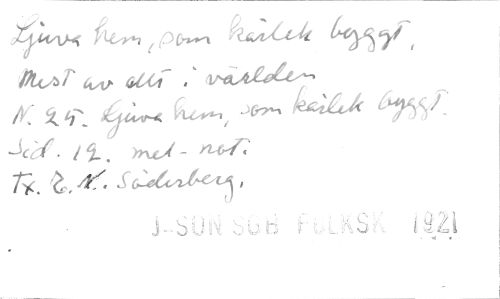 Ljuva hem, som kärlek byggt,
Mest av allt i världen
N. 25. Ljuva hem, som kärlek byggt.
Sid. 12. mel-not.
Tx. E. N. Söderberg.
J-SON SGB FOLKSK 1921